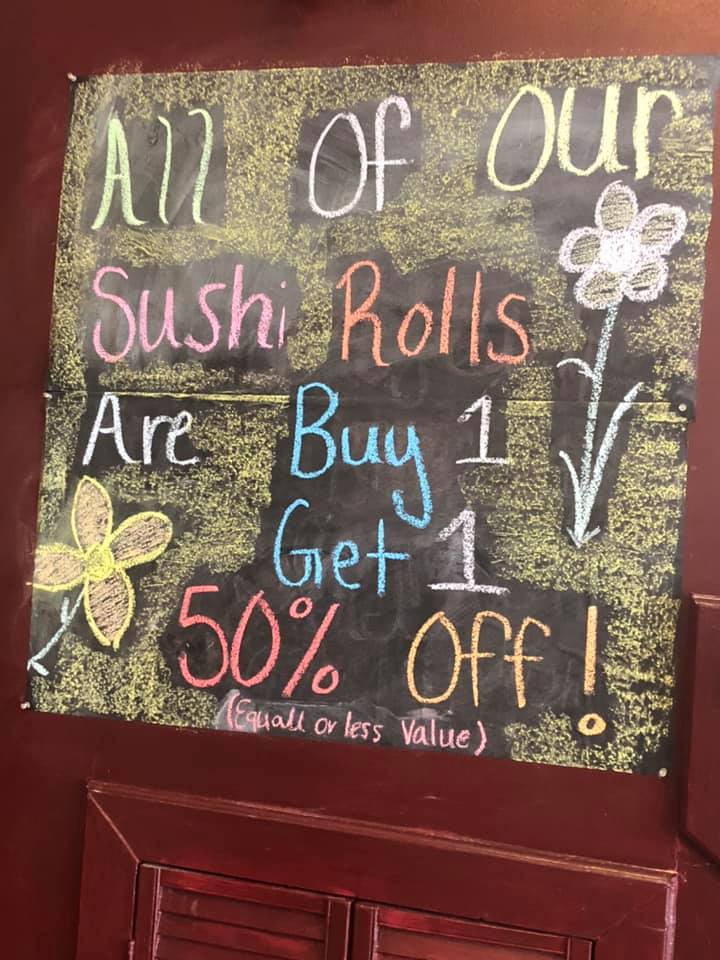 All Of our
Sushi Rolls
Are Buy 1
Get 1
50% Off!
(Equall or less Value)